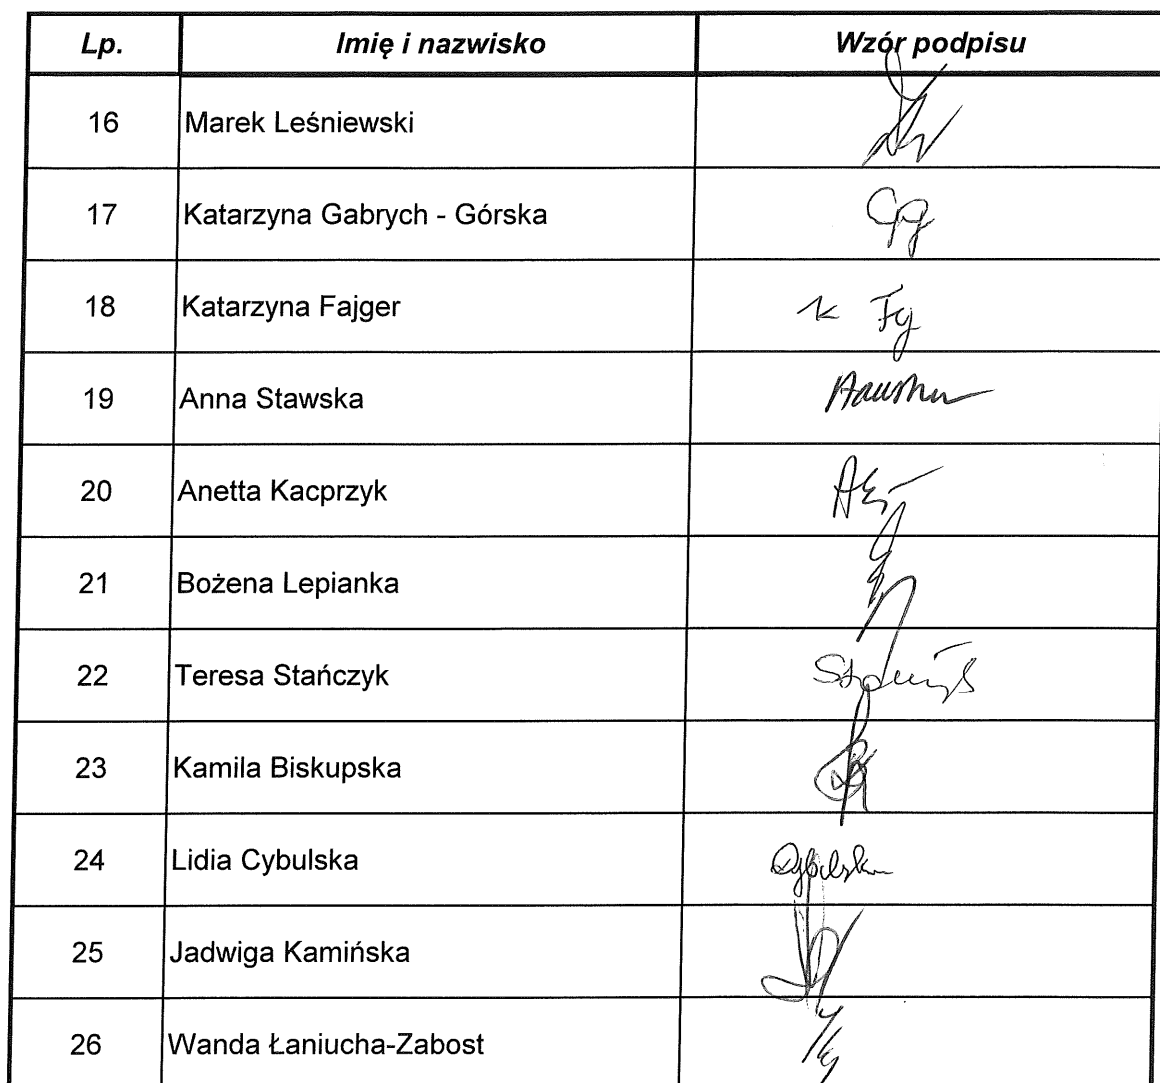 Lp. Imię i nazwisko Wzór podpisu
16 Marek Leśniewski
17 Katarzyna Gabrych - Górska
18 Katarzyna Fajger
19 Anna Stawska
20 Anetta Kacprzyk
21 Bożena Lepianka
22 Teresa Stańczyk
23 Kamila Biskupska
24 Lidia Cybulska
25 Jadwiga Kamińska
26 Wanda Łaniucha-Zabost